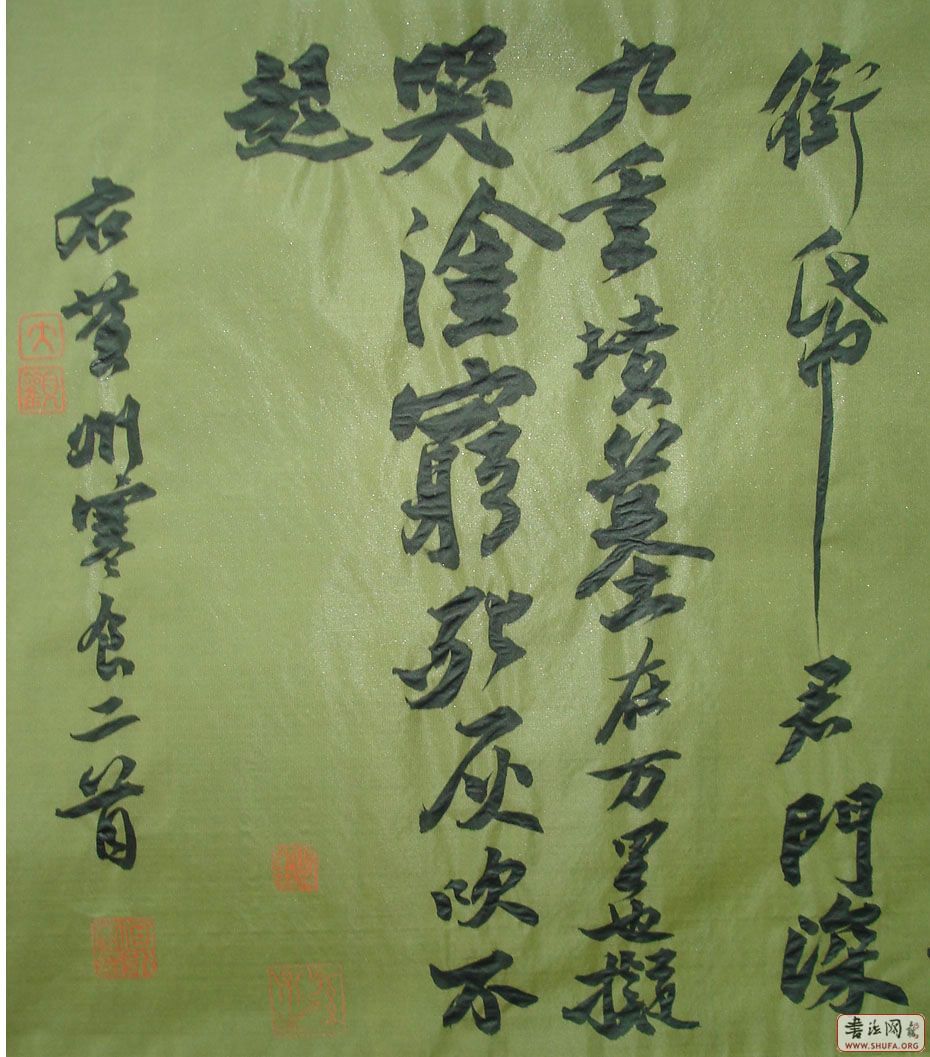 銜帋君門深
九重墳墓在万里也擬
哭塗窮死灰吹不
起
右黃州寒食二首
大
觀
書法网
WWW.SHUFA.ORG